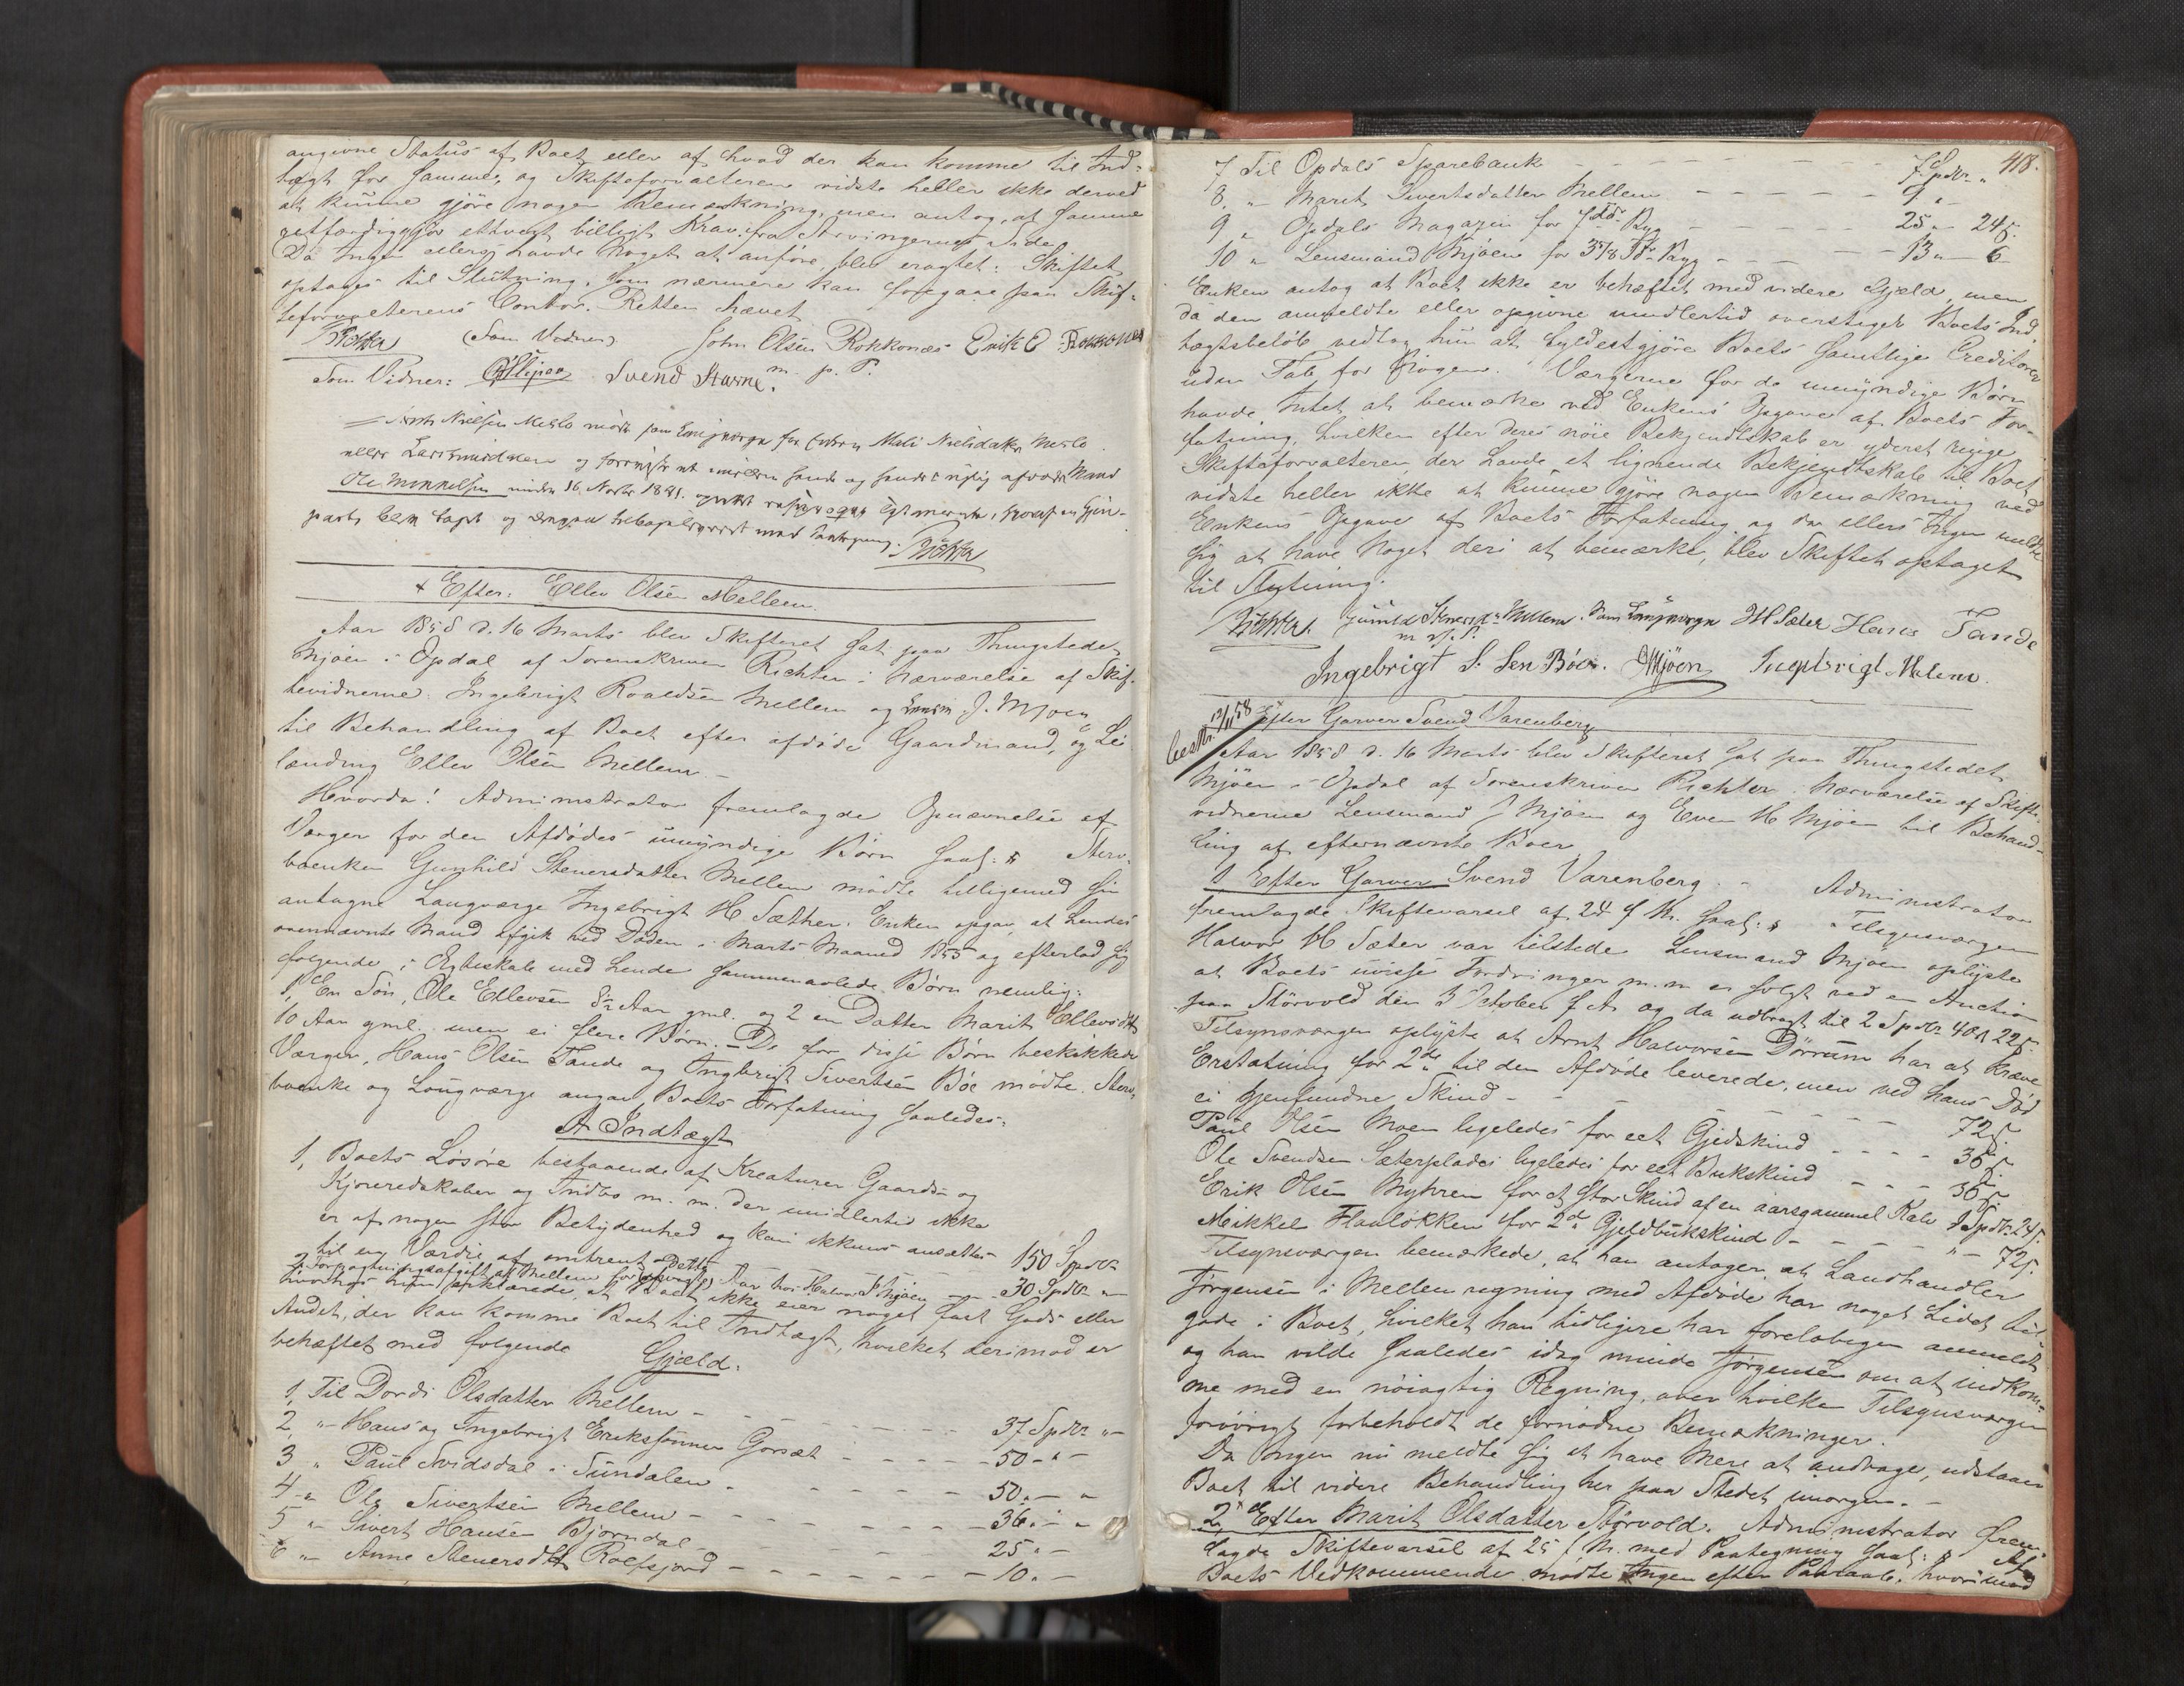 angivne Status af Boet eller af hvad der kan komme til Ind-
tægt for samme, og Skifteforvalteren vidste heller ikke derved
at kunne gjöre nogen Bemærkning, men antog, at samme
retfærdiggjör ethvert billigt Krav fra Arvingernes Side
Da Ingen ellers havde Noget at anföre, blev eragtet: Skiftet
optages til Slutning, som nærmere kan foregaae paa Skif-
teforvalterens Contor. Retten hævet
Richter (Som Vidner) John Olsen Rokkonæs Erik E Rokkones
Som Vidner: Svend Stavne m. p. P.
Nielsen Meslo mödte som Laugværge for Enken Mali Nielsdatter Meslo
og
Ole Mikkelsen
parts
Richter
+ Efter: Ellev Olsen Mellem.
Aar 1858 d. 16 Marts blev Skifteret sat paa Thingstedet
Mjöen i Opdal af Sorenskriver Richter i Nærværelse af Skif-
tevidnerne Ingebrigt Roaldsen Mellem og Lensm. J. Mjoen
til Behandling af Boet efter afdöde Gaardmand, og Lei
lænding Ellev Olsen Mellem. -
Hvorda! Administrator fremlagde Opnævnelse af
Værger for den Afdödes umyndige Börn saal: Sterv-
boenken Gunhild Steneresdatter Mellem mödte tilligemed sin
antagne Laugværge Ingebrigt H. Sæther. Enken opgav, at hendes
ovennævnte Mand afgik ved Döden i Marts Maaned 1855 og efterlod sig
fölgende i Ægteskab med hende sammenavlede Börn nemlig:
1, En Sön, Ole Ellevsen 8½ Aar gml. og 2 en Datter Marit Ellevsdtr
10 Aar gml. men ei flere Börn. - De for disse Börn beskikkede
Værger, Hans Olsen Tande og Ingebrigt Sivertsen Böe mödte. Sterv-
boenke og Laugværge angav Boets Forfatning saaledes:
A Indtægt
1, Boets Lösöre bestaaende af Kreaturer Gaards- og
Kjöreredskaber og Indbo m. m. der imidlertid ikke
er af nogen stor Betydenhed og kan ikkuns ansættes
til en Værdie af omtrent 150 Spdlr
2, Forpagtningsafgift af Mellem for Aar hos Halvor J Mjöen - 30 Spdlr "
hvorhos hun forklarede, at Boet ikke eier noget fast Gods eller
Andet, der kan komme Boet til Indtægt, hvilket derimod er
behæftet med fölgende Gjæld.
1, Til Dordi Olsdatter Mellem - - - - 37 Spdlr " -
2, " - Hans og Ingebrigt Erikssönner Gorsæt - - - - 50 - " -
3 " Paul Svidsdal i Sundalen - - - - 50. - "
4 - " Ole Sivertsen Mellem - - - - 36. - "
5 " Sivert Hansen Bjorndal - - - - 25 " -
6 " - Anne Stenersdtr Rolfsjord - - - - 10. -
418.
7 Til Opdals Sparebank - - - - 7 Spdlr. "
8, " Marit Sivertsdatter Mellem - - - - 9 "
9 " Opdals Magazin for 7 Td. Byg - - - - 25 " 24 s.
10 " Lensmand Mjöen for 3 5/8 Td. Byg - - - - 13 " - 6
Enken antog at Boet ikke er behæftet med videre Gjæld, men
da den anmeldte eller opgivne imidlertid overstiger Boets Ind-
tægtsbelöb vedtog hun at fyldestgjöre Boets samtlige Creditorer
uden Tab for Nogen. Værgerne for de umyndige Börn
havde Intet at bemærke ved Enkens Opgave af Boets For-
fatning, hvilken efter deres nöie Bekjendtskab er yderst ringe
Skifteforvalteren, der havde et lignende Bekjendtskab til Boet
vidste heller ikke at kunne gjöre nogen Bemærkning ved
Enkens Opgave af Boets Forfatning, og da ellers Ingen meldte
sig at have Noget deri at bemærke, blev Skiftet optaget
til Slutning.
Richter. Gunild Stenersdtr Mellem m. p. P. Som Laugværge IHSæter Hans Tande
Ingebrigt S. Sen Böe. JMjöen Ingebrigt Melem.
12/11 58
Efter Garver Svend Varenberg
Aar 1858 d. 16 Marts blev Skifteret sat paa Thingstedet
Mjöen i Opdal af Sorenskriver Richter i Nærværelse af Skifte-
vidnerne Lensmand J Mjöen og Even H Mjöen til Behand-
ling af efternævnte Boer
1 Efter Garver Svend Varenberg. - Administrator
fremlagde Skiftevarsel af 24 f. M. saal: " Tilsynsværgen
Halvor H Sæter var tilstede Lensmand Mjöen oplyste
at Boets uvisse Fordringer m. m er solgt ved en Auction
paa Störvold den 3 October f. A. og da udbragt til 2 Spdlr 4 ort 22 s.
Tilsynsværgen oplyste at Arnt Halvorsen Dörrum har at kræve
Erstatning for 2de til den Afdöde leverede, men ved hans Död
ei gjenfundne Skind - - - - 72 s.
Paul Olsen Moen ligeledes for eet Gjedskind - - - - 36 s.
Ole Svendsen Sæterplads ligeledes for eet Bukskind - - - 36 s.
Erik Olsen Myhren for et stor Skind af en aarsgammel Kalv 1 Spdlr. 24 s.
Mikkel Flaulökken for 2de Gjeldbukskind - - - - " - 72 s.
Tilsynsværgen bemærkede, at han antager at Landhandler
Jörgensen i Mellemregning med Afdöde har noget Lidet til-
gode i Boet, hvilket han tidligere har forelöbigen anmeldt
og han vilde saaledes idag minde Jörgensen om at indkom-
me med en nöiagtig Regning, over hvilken Tilsynsværgen
forövrigt forbeholdt de fornödne Bemærkninger.
Da Ingen nu meldte sig at have Mere at andrage, udstaaer
Boet til videre Behandling her paa Stedet imorgen. -
2, Efter Marit Olsdatter Störvold. Administrator frem-
lagde Skiftevarsel af 25 f. M. med Paategning saal: " Af
Boets Vedkommende mödte Ingen efter Paaraab, hvorimod